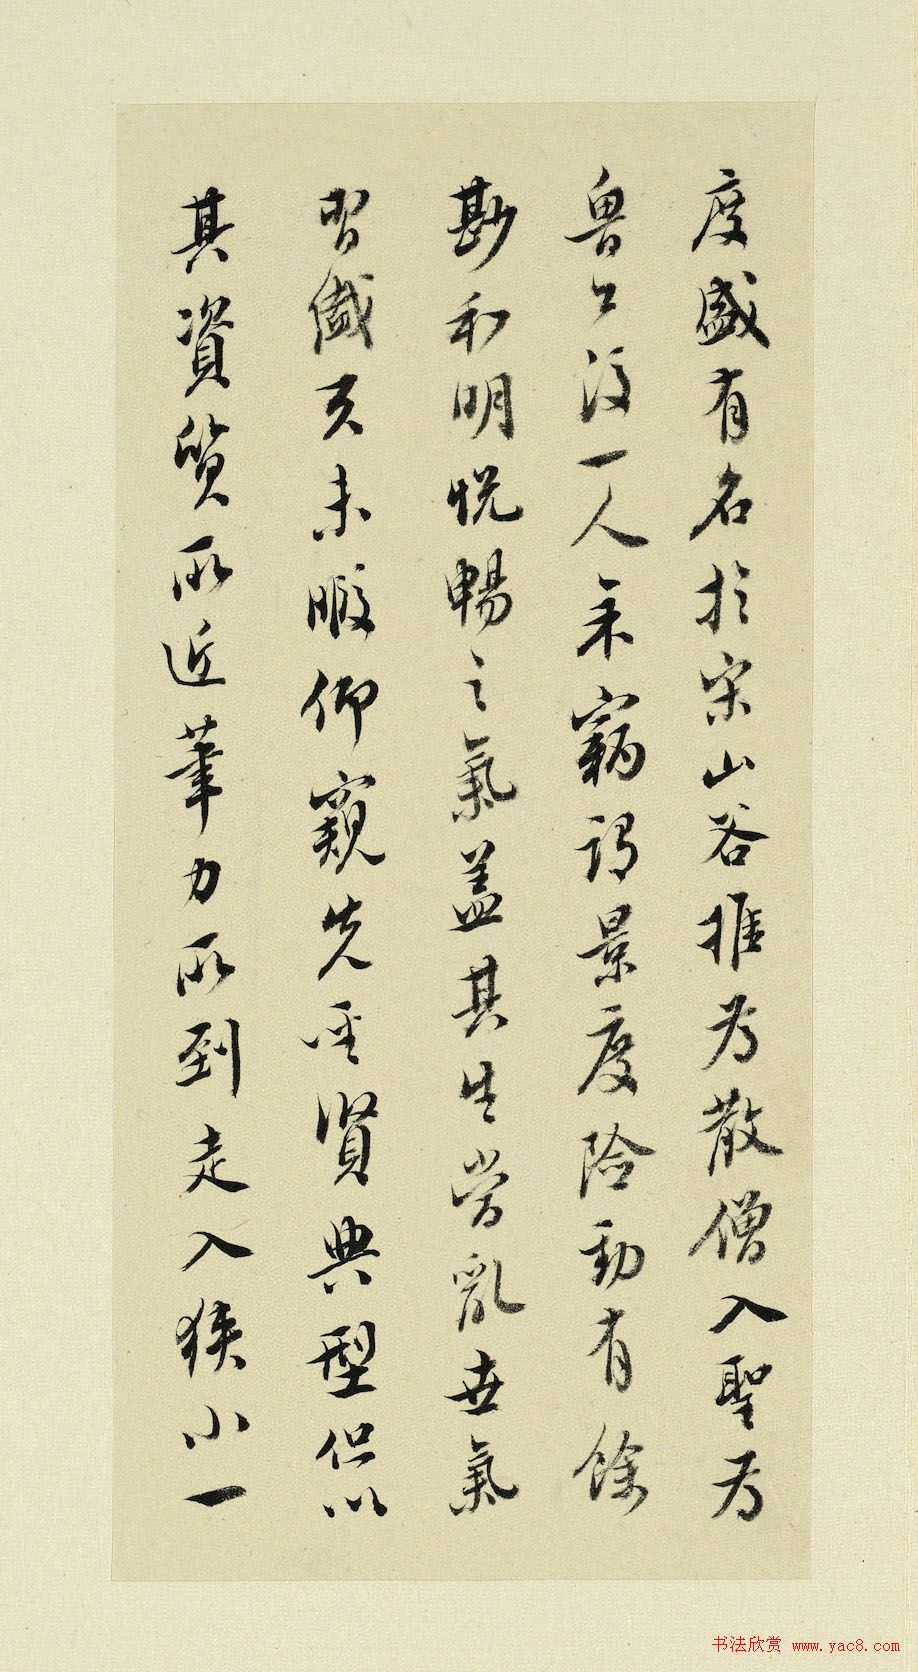 度盛有名於宋山谷推為散僧入聖為
魯公後一人未竊謂景度險動有餘
尠和明悅暢之氣蓋其生當亂世氣
習儳互未暇仰窺先聖賢典型但以
其資質所近筆力所到走入狹小一
书法欣赏 www.yac8.com